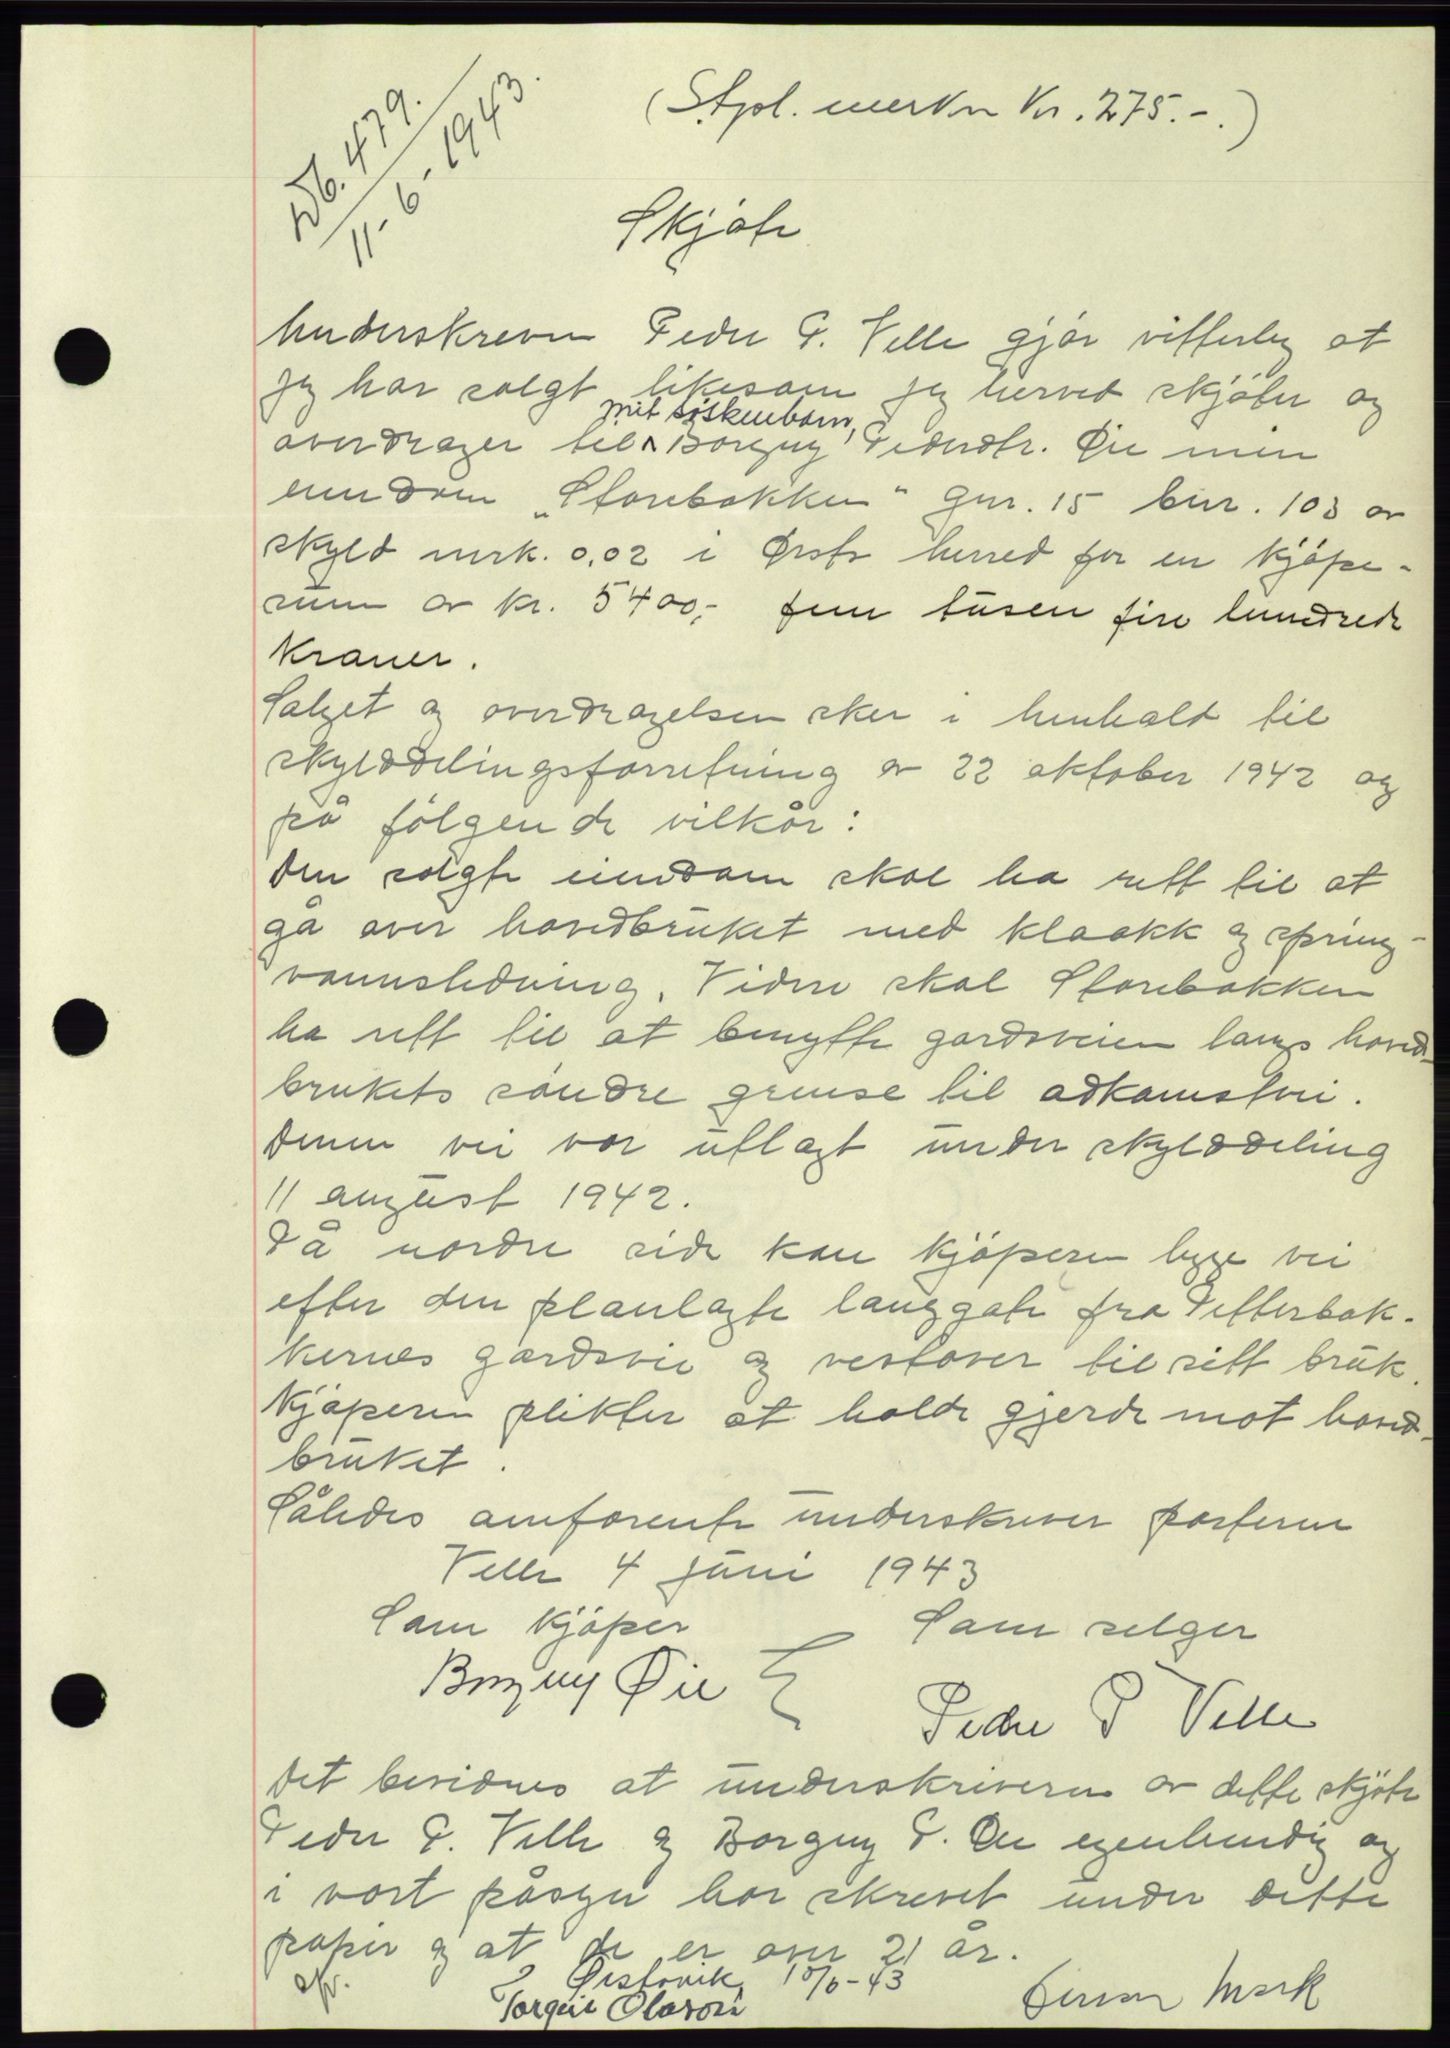 Db. 479.
11-6-1943.
(Stpl. merker Kr. 275.-.)
Skjøte
Underskreven Peder P. Velle gjør vitterleg at
jeg har solgt likesom jeg herved skjøter og
mit søskenbarn,
overdrager til ^ Borgny Pedersdtr. Øie min
eiendom „Storebakken" gnr. 15 bnr. 103 av
skyld mrk. 0,02 i Ørsta herred for en kjøpe-
sum av kr. 5400,- fem tusen fire hundrede
kroner.
Salget og overdragelsen sker i henhold til
skylddelingsforretning av 22 oktober 1942 og
på følgende vilkår:
Den solgte eiendom skal ha rett til at
gå over hovedbruket med kloakk og spring-
vannsledning. Videre skal Storebakken
ha rett til at benytte gardsveien langs hoved-
brukets søndre grense til adkomstvei.
Denne vei var utlagt under skylddeling
11 august 1942.
På nordre side kan kjøperen legge vei
efter den planlagte langgate fra Petterbak-
kernes gardsvei og vestover til sitt bruk.
Kjøperen plikter at holde gjerde mot hoved-
bruket.
Således omforente underskriver parterne
Velle 4 juni 1943
Som kjøper Som selger
Borgny Øie
Peder P Velle
Det bevidnes at underskriveren av dette skjøte
Peder P. Velle og Borgny P. Øie egenhendig og
i vort påsyn har skrevet under dette
papir og at de er over 21 år.
Ørstavik 10/6-43
Torgeir Olavson Einar Mork